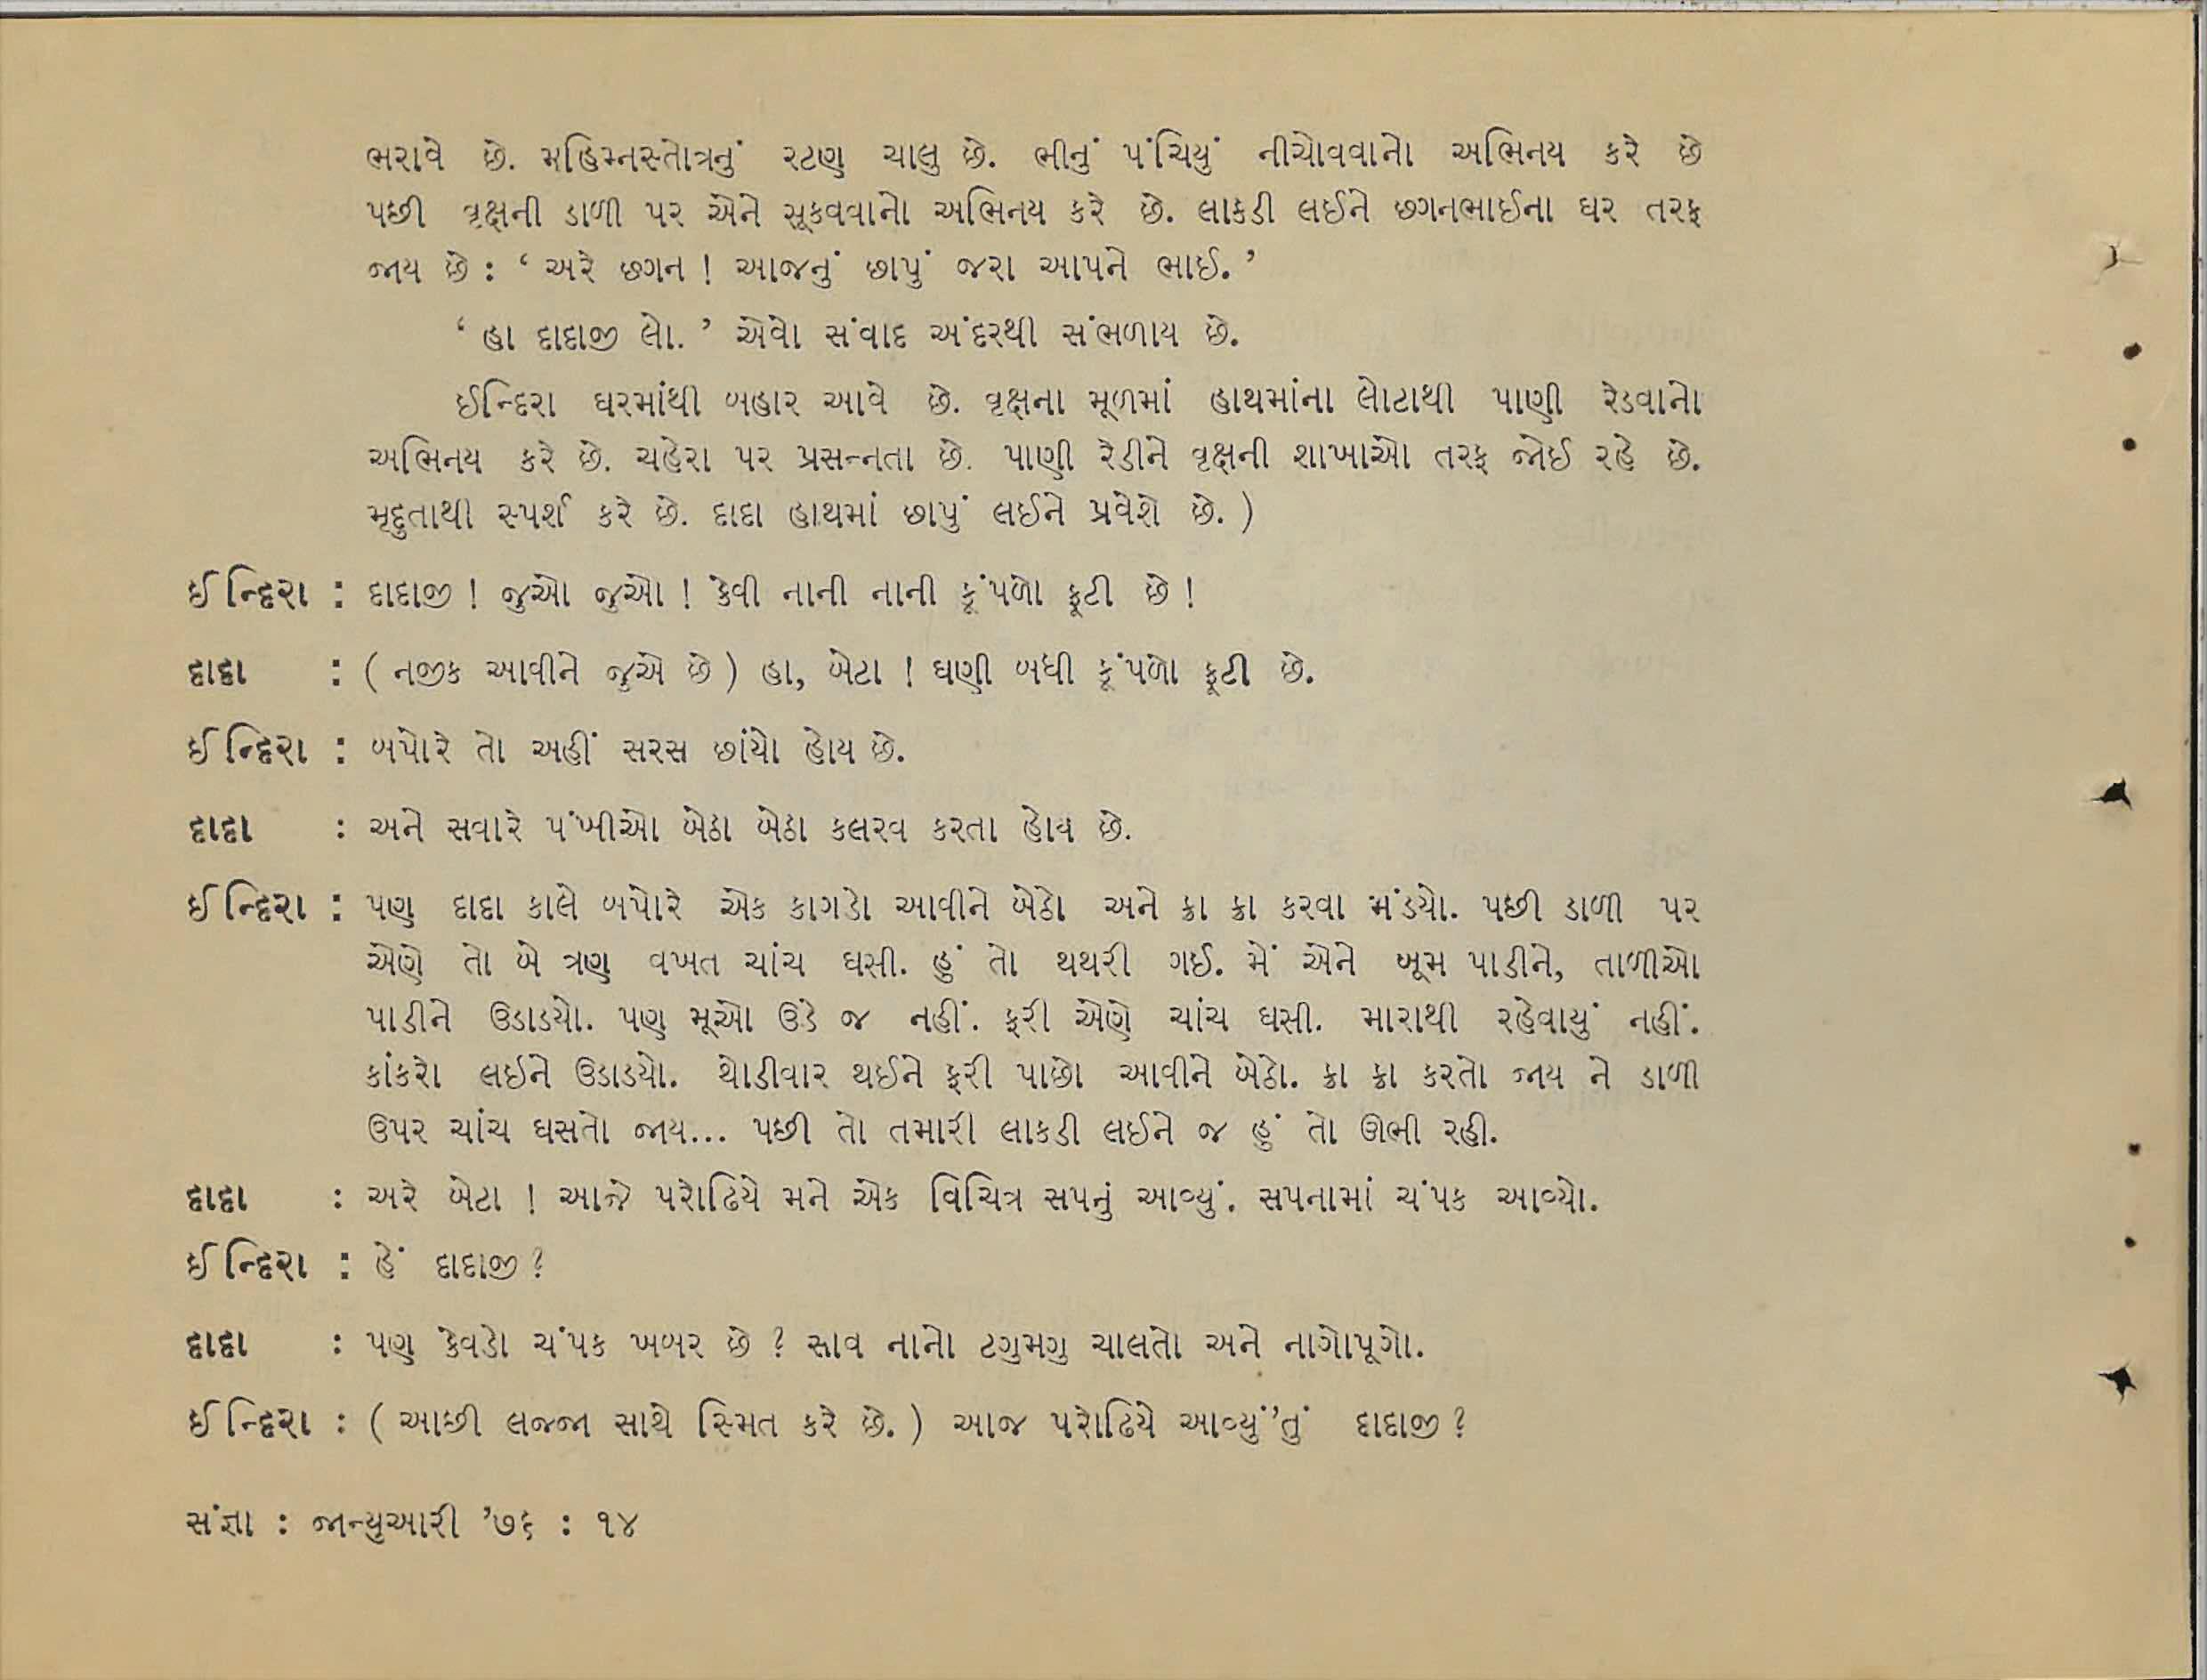 ભરાવે છે. મહિમ્નસ્તોત્રનું રટણ ચાલુ છે. ભીનું પંચિયું નીચોવવાનો અભિનય કરે છે
પછી વૃક્ષની ડાળી પર એને સૂકવવાનો અભિનય કરે છે. લાકડી લઈને છગનભાઈના ઘર તરફ
જાય છે : ‘ અરે છગન ! આજનું છાપું જરા આપને ભાઈ. ’
‘ હા દાદાજી લો. ’ એવો સંવાદ અંદરથી સંભળાય છે.
ઈન્દિરા ઘરમાંથી બહાર આવે છે. વૃક્ષના મૂળમાં હાથમાંના લોટાથી પાણી રેડવાનો
અભિનય કરે છે. ચહેરા પર પ્રસન્નતા છે. પાણી રેડીને વૃક્ષની શાખાઓ તરફ જોઈ રહે છે.
મૃદુતાથી સ્પર્શ કરે છે. દાદા હાથમાં છાપું લઈને પ્રવેશે છે. )
ઈન્દિરા : દાદાજી ! જુઓ જુઓ ! કેવી નાની નાની કૂંપળો ફૂટી છે !
દાદા : ( નજીક આવીને જુએ છે ) હા, બેટા ! ઘણી બધી કૂંપળો ફૂટી છે.
ઈન્દિરા : બપોરે તો અહીં સરસ છાંયો હોય છે.
દાદા : અને સવારે પંખીઓ બેઠા બેઠા કલરવ કરતા હોય છે.
ઈન્દિરા : પણ દાદા કાલે બપોરે એક કાગડો આવીને બેઠો અને ક્રા ક્રા કરવા મંડયો. પછી ડાળી પર
એણે તો બે ત્રણ વખત ચાંચ ઘસી. હું તો થથરી ગઈ. મેં એને બૂમ પાડીને, તાળીઓ
પાડીને ઉડાડયો. પણ મૂઓ ઉડે જ નહીં. ફરી એણે ચાંચ ઘસી. મારાથી રહેવાયું નહીં.
કાંકરો લઈને ઉડાડયો. થોડીવાર થઈને ફરી પાછો આવીને બેઠો. ક્રા ક્રા કરતો જાય ને ડાળી
ઉપર ચાંચ ઘસતો જાય... પછી તો તમારી લાકડી લઈને જ હું તો ઊભી રહી.
દાદા : અરે બેટા ! આજે પરોઢિયે મને એક વિચિત્ર સપનું આવ્યું. સપનામાં ચંપક આવ્યો.
ઈન્દિરા : હેં દાદાજી ?
દાદા : પણ કેવડો ચંપક ખબર છે ? સાવ નાનો ટગુમગુ ચાલતો અને નાગોપૂગો.
ઈન્દિરા : ( આછી લજ્જા સાથે સ્મિત કરે છે. ) આજ પરોઢિયે આવ્યું’તું દાદાજી ?
સંજ્ઞા : જાન્યુઆરી ’૭૬ : ૧૪